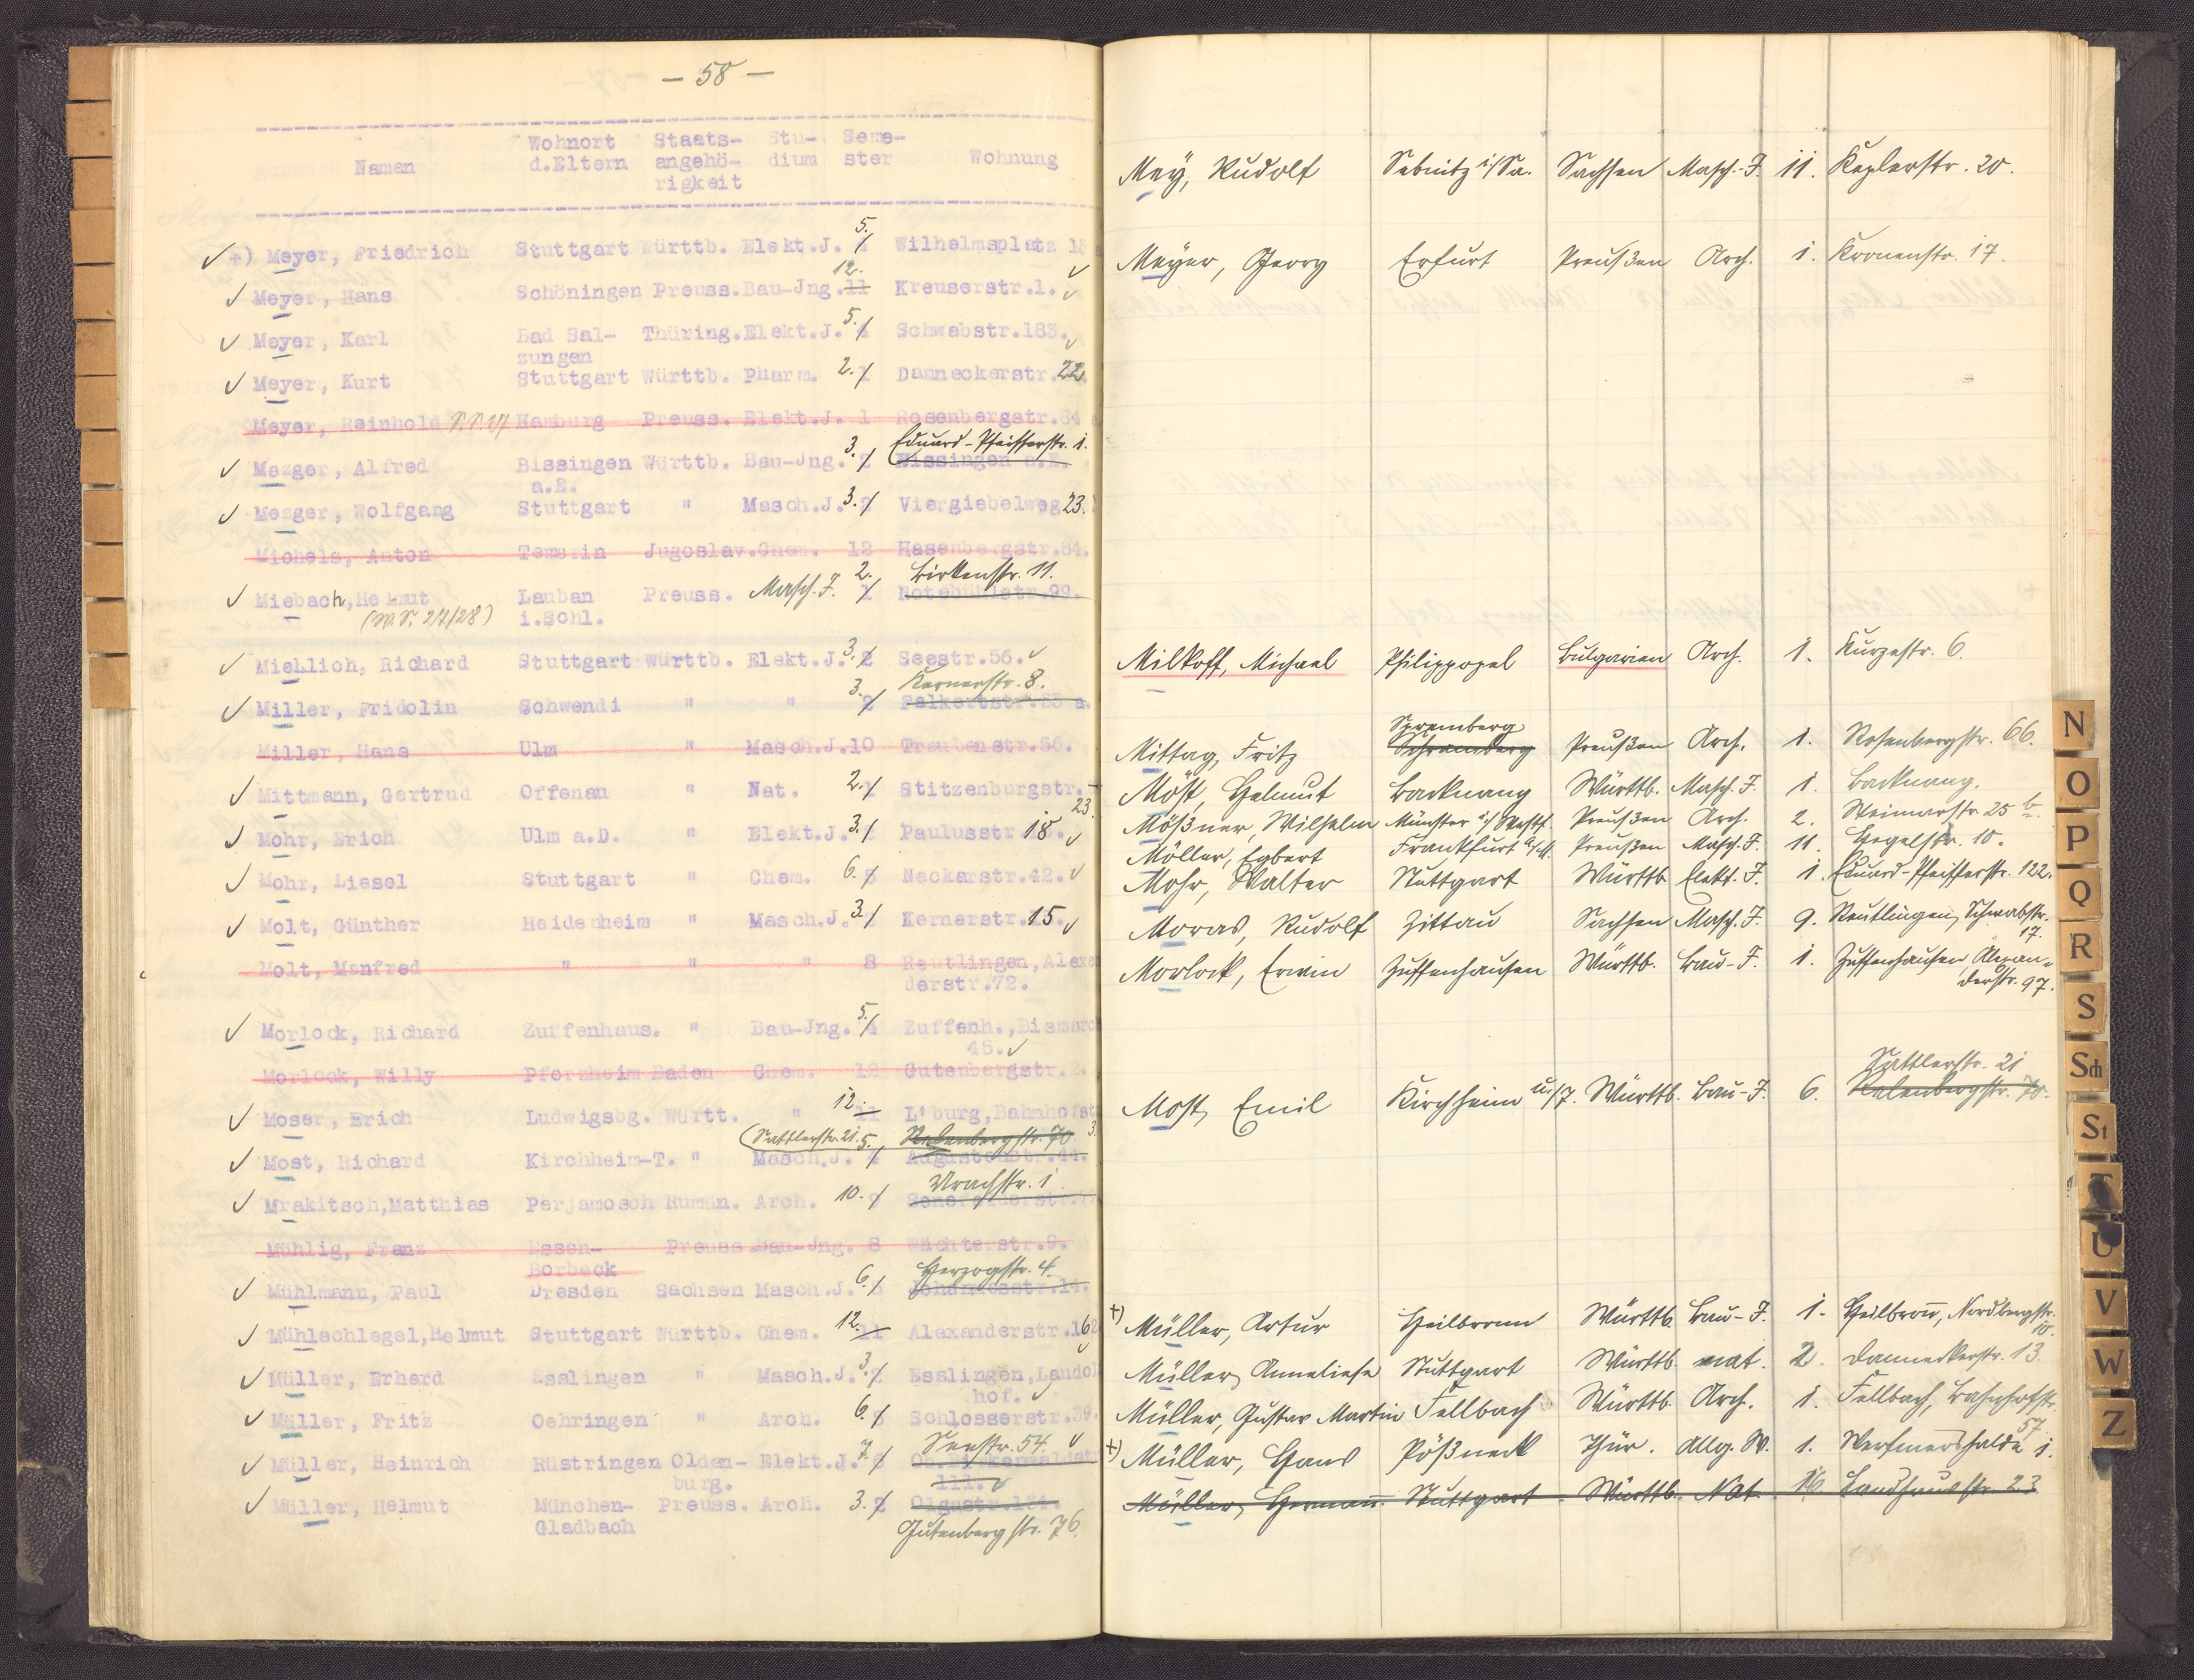 - 58 -
Namen Wohnort d.Eltern Staats-angehö-rigkeit Stu-dium Seme-ster Wohnung
✓ +) Meyer, Friedrich Stuttgart Württb. Elekt.J. 5. Wilhelmsplatz 13
✓ Meyer, Hans Schöningen Preuss. Bau-Jng. 11 12. Kreuserstr.1. ✓
✓ Meyer, Karl Bad Sal-zungen Thüring. Elekt.J. 4 5. Schwabstr.183. ✓
✓ Meyer, Kurt Stuttgart Württb. Pharm. 2. 1 Danneckerstr.22
Meyer, Reinhold S.S.27 Hamburg Preuss. Elekt.J. 1 Rosenbergstr.84
✓ Mezger, Alfred Bissingen a.E. Württb. Bau-Jng. 3. 2 Bissingen a.E. Eduard-Pfeifferstr. 1.
✓ Mezger, Wolfgang Stuttgart " Masch.J. 3. 2 Viergiebelweg 23.
Michels, Anton Temerin Jugoslav. Chem. 12 Hasenbergstr.84.
✓ Miebach, Helmut (W.S. 27/28) Lauban i.Schl. Preuss. Masch.J. 2. 1 Rotebühlstr.99. Birkenstr. 11.
✓ Miehlich, Richard Stuttgart Württb. Elekt.J. 3. 2 Seestr.56. ✓
✓ Miller, Fridolin Schwendi " " 3. 2 Falkertstr.33 a. Kernerstr. 8.
Miller, Hans Ulm " Masch.J. 10 Traubenstr.56.
✓ Mittmann, Gertrud Offenau " Nat. 2. 1 Stitzenburgstr. 23
✓ Mohr, Erich Ulm a.D. " Elekt.J. 3. Paulusstr 18. ✓
✓ Mohr, Liesel Stuttgart " Chem. 6. 5 Neckarstr.42. ✓
✓ Molt, Günther Heidenheim " Masch.J. 3. Kernerstr.15. ✓
Molt, Manfred " " " 8 Reutlingen, Alexanderstr.72.
✓ Morlock, Richard Zuffenhaus. " Bau-Jng. 5. 4 Zuffenh., Bismarck 45. ✓
Morlock, Willy Pforzheim Baden Chem. 12 Gutenbergstr.2.
✓ Moser, Erich Ludwigsbg. Württ. " 12. 11 L'burg, Bahnhofst 3.
✓ Most, Richard Kirchheim-T. " Masch.J. 5. 4 Augustenstr.44. Relenbergstr. 70 (Sattlerstr. 21.
✓ Mrakitsch, Matthias Perjamosch Rumän. Arch. 10. 9 Urachstr. 1.
Mühlig, Franz Essen-Borbeck Preuss. Bau-Jng. 8 Wächterstr.9.
✓ Mühlmann, Paul Dresden Sachsen Masch.J. 6. 5 Johannesstr.14. Herzogstr. 4.
✓ Mühlschlegel, Helmut Stuttgart Württb. Chem. 12. 11 Alexanderstr.162 ✓
✓ Müller, Erhard Esslingen " Masch.J. 3. 2 Esslingen, Landolinshof. ✓
✓ Müller, Fritz Oehringen " Arch. 6. 5 Schlosserstr.39.
✓ Müller, Heinrich Rüstringen Olden-burg. Elekt.J. 7. 6 Ob.Birkenwaldstr 111. Seestr. 54. ✓
✓ Müller, Helmut München-Gladbach Preuss. Arch. 3. 2 Olgastr.131. Gutenbergstr. 76.
Mey, Rudolf Sebnitz i/Sa. Sachsen Masch.-J. 11. Keplerstr. 20.
Meyer, Georg Erfurt Preußen Arch. 1. Kronenstr. 17.
Milkoff, Michael Philippopel Bulgarien Arch. 1. Kurzestr. 6.
Mittag, Fritz Schramberg Spremberg Preußen Arch. 1. Rosenbergstr. 66.
Möst, Helmut Backnang Württb. Masch.J. 1. Backnang.
Mößner, Wilhelm Münster i/Westf. Preußen Arch. 2. Weimarstr. 25 b.
Möller, Egbert Frankfurt a/M. Preußen Masch.J. 11. Hegelstr. 10.
Mohr, Walter Stuttgart Württb. Elekt.J. 1. Eduard-Pfeifferstr. 122.
Moras, Rudolf Zittau Sachsen Masch.J. 9. Reutlingen, Schwabstr. 17.
Morlock, Erwin Zuffenhausen Württb. Bau-J. 1. Zuffenhausen Alexan-derstr. 97.
Most, Emil Kirchheim u./T. Württb. Bau-J. 6. Relenbergstr. 70. Sattlerstr. 21
+) Müller, Artur Heilbronn Württb. Bau-J. 1. Heilbronn, Nordbergstr. 10.
Müller, Anneliese Stuttgart Württb. nat. 2. Danneckerstr. 13.
Müller, Gustav Martin Fellbach Württb. Arch. 1. Fellbach, Bahnhofstr. 57
+) Müller, Hans Pößneck Thür. Allg. W. 1. Werfmershalde 1.
Müller, Hermann Stuttgart Württb. Nat. 16 Landhausstr. 23
N
O
P
Q
R
S
Sch
St
T
U
V
W
Z